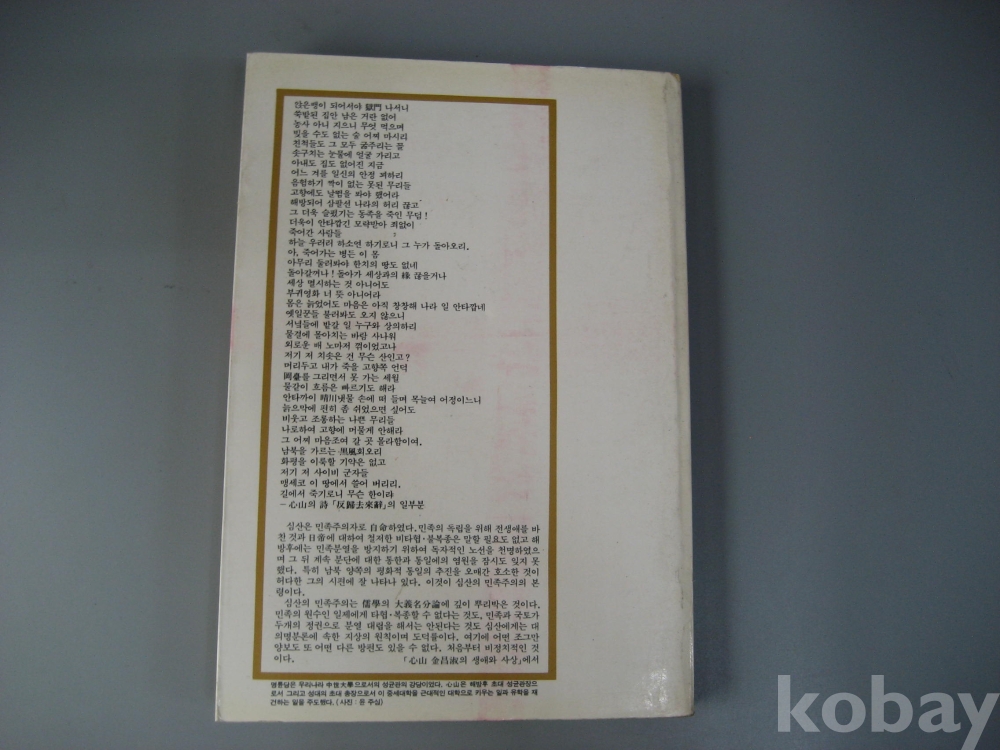 앉은뱅이 되어서야 獄門 나서니
쑥밭된 집안 남은 거란 없어
농사 아니 지으니 무엇 먹으며
빚을 수도 없는 술 어찌 마시리
친척들도 그 모두 굶주리는 꼴
솟구치는 눈물에 얼굴 가리고
아내도 집도 없어진 지금
어느 겨를 일신의 안정 꾀하리
음험하기 짝이 없는 못된 무리들
고향에도 날뜀을 봐야 했어라
해방되어 삼팔선 나라의 허리 끊고
그 더욱 슬펐기는 동족을 죽인 무덤!
더욱이 안타깝긴 모략받아 죄없이
죽어간 사람들
하늘 우러러 하소연 하기로니 그 누가 돌아오리.
아, 죽어가는 병든 이 몸
아무리 둘러봐야 한치의 땅도 없네
돌아갈꺼나! 돌아가 세상과의 緣 끊을거나
세상 멸시하는 것 아니어도
부귀영화 너 뜻 아니어라
몸은 늙었어도 마음은 아직 창창해 나라 일 안타깝네
옛일꾼들 불러봐도 오지 않으니
서녘들에 밭갈 일 누구와 상의하리
물결에 몰아치는 바람 사나워
외로운 배 노마저 꺾이었고나
저기 저 치솟은 건 무슨 산인고?
머리두고 내가 죽을 고향쪽 언덕
를 그리면서 못 가는 세월
물같이 흐름은 빠르기도 해라
안타까이 晴川냇물 손에 떠 들며 목늘여 어정이느니
늙으막에 편히 좀 쉬었으면 싶어도
비웃고 조롱하는 나쁜 무리들
나로하여 고향에 머물게 안해라
그 어찌 마음조여 갈 곳 몰라함이여.
남북을 가르는 黑風회오리
화평을 이룩할 기약은 없고
저기 저 사이비 군자들
맹세코 이 땅에서 쓸어 버리리.
길에서 죽기로니 무슨 한이랴
－心山의 詩「反歸去來辭」의 일부분
심산은 민족주의자로 自命하였다. 민족의 독립을 위해 전생애를 바
친 것과 日帝에 대하여 철저한 비타협·불복종은 말할 필요도 없고 해
방후에는 민족분열을 방지하기 위하여 독자적인 노선을 천명하였으
며 그 뒤 계속 분단에 대한 통한과 통일에의 염원을 잠시도 잊지 못
했다. 특히 남북 양쪽의 평화적 통일의 추진을 오매간 호소한 것이
허다한 그의 시편에 잘 나타나 있다. 이것이 심산의 민족주의의 본
령이다.
심산의 민족주의는 儒學의 大義名分論에 깊이 뿌리박은 것이다.
민족의 원수인 일제에게 타협·복종할 수 없다는 것도, 민족과 국토가
두개의 정권으로 분열 대립을 해서는 안된다는 것도 심산에게는 대
의명분론에 속한 지상의 원칙이며 도덕률이다. 여기에 어떤 조그만
양보도 또 어떤 다른 방편도 있을 수 없다. 처음부터 비정치적인 것
이다. 「心山 金昌淑의 생애와 사상」에서
명륜당은 우리나라 中世大學으로서의 성균관의 강당이었다. 心山은 해방후 초대 성균관장으
로서 그리고 성대의 초대 총장으로서 이 중세대학을 근대적인 대학으로 키우는 일과 유학을 재
건하는 일을 주도했다. (사진 : 윤 주심)
kobay